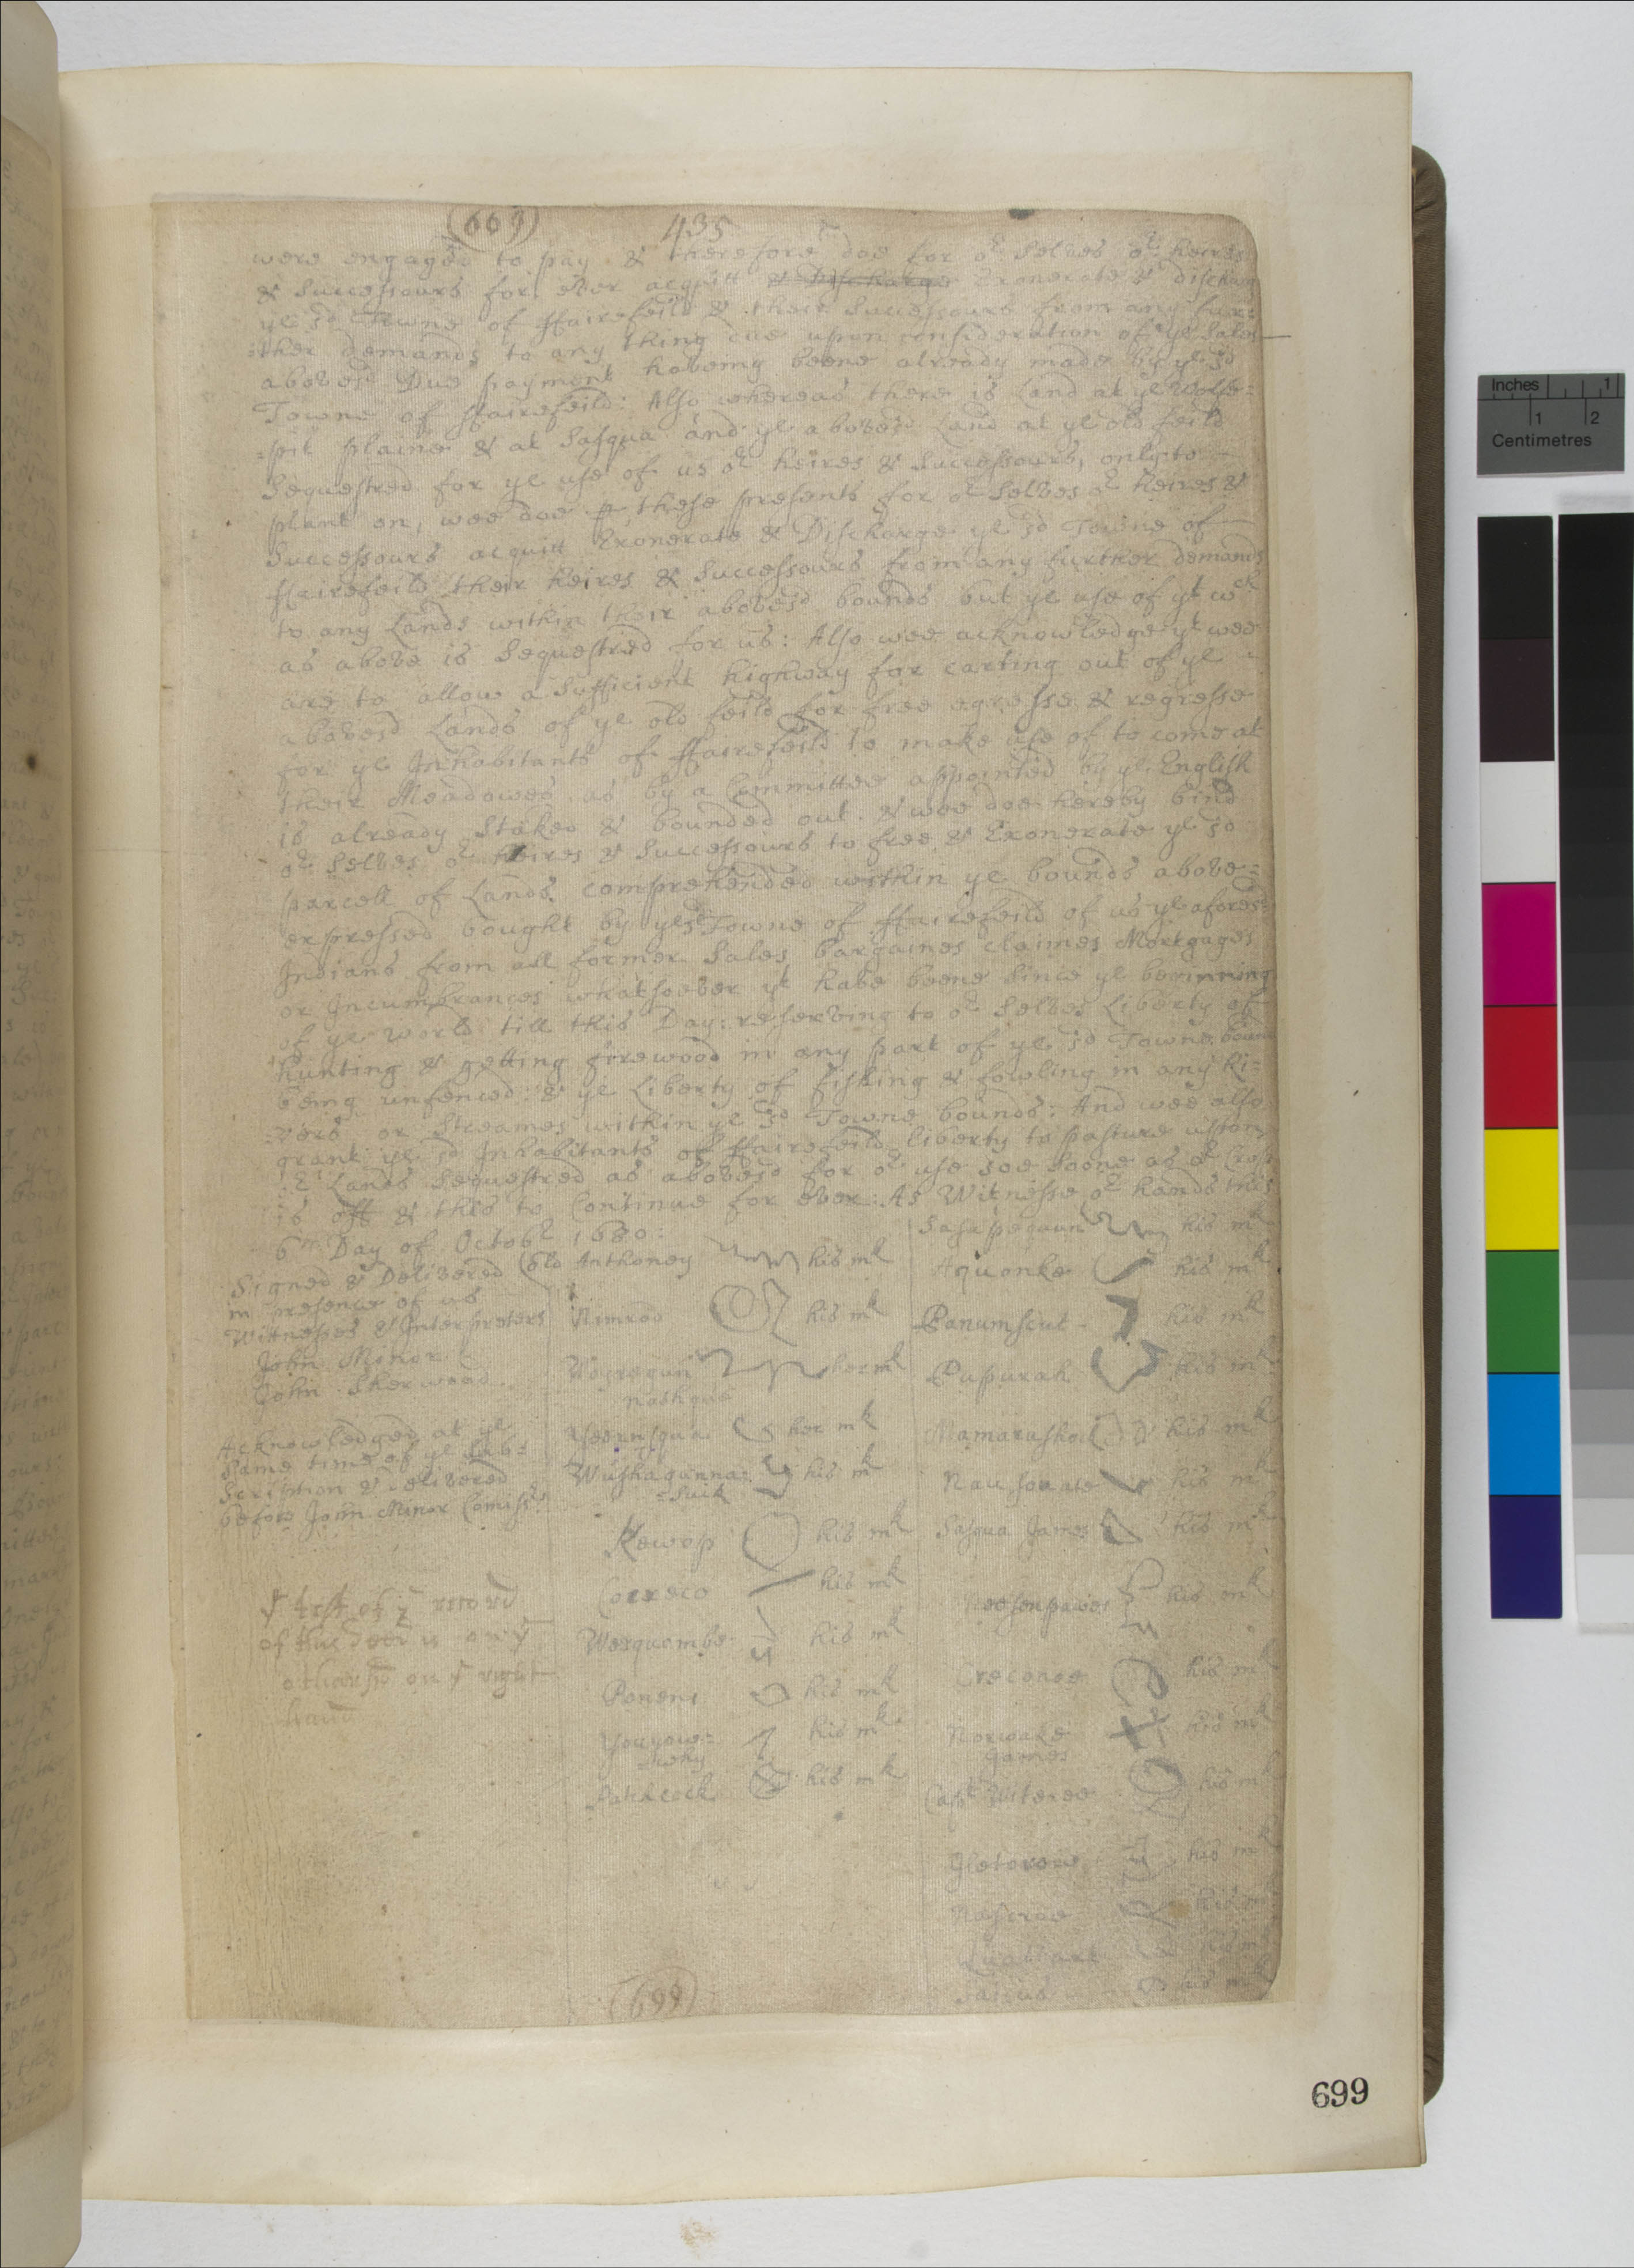 (669) 435
were engaged to pay & therefore doe for or Selves or heires
& Successours for ever acquitt & Discharge Exonerate & discharg
ye sd Towne of ffairefeild & their Successours from any fur=
:ther demands to any thing due upon consideration of ye Sales
abovesd Due payment haveing beene already made by ye sd
Towne of ffairefeild: Also whereas there is Land at ye Wolfe=
=pit plaine & at Sasqua and ye abovesd Land at ye old feild
Sequestred for ye use of us or heires & Successours, only to
plant on, wee doe p these presents for or Selves or heires &
Successours acquitt Exonerate & Discharge ye sd Towne of
ffairefeild their heires & Successours from any further demands
to any Lands within their abovesd bounds but ye use of yt wch
as above is Sequestred for us: Also wee acknowledge yt wee
are to allow a Sufficient highway for carting out of ye
abovesd Lands of ye old feild for free egresse & regresse
for ye Inhabitants of ffairefeild to make use of to come at
their Meadowes as by a Committee appointed by ye English
is already Staked & bounded out. & wee doe hereby bind
or Selves or heires & Successours to free & Exonerate ye sd
parcell of Lands comprehended within ye bounds above=
expressed bought by ye sd Towne of ffairefeild of us ye aforesd
Indians from all former Sales bargaines claimes Mortgages
or Incumbrances whatsoever yt have beene Since ye beginning
of ye World till this Day: reserving to or Selves Liberty of
hunting & getting firewood in any part of ye sd Towne bounds
being unfenced: & ye Liberty of fishing & fowling in any Ri=
:vers or Streames within ye sd Towne bounds: And wee also
grant ye sd Inhabitants of ffairefeild liberty to pasture upon
or Lands Sequestred as abovesd for or use soe Soone as or Crop
is off & this to Continue for ever: As Witnesse or hands this
6th Day of Octobr 1680:
Signed & Delivered
in presence of us
Witnesses & Interpreters
John Minor
John Sherwood
Acknowledged at ye
Same time of ye Sub=
Scription & Delivered
before John Minor Comissr
of this deed is on ye
other sd on ye right
hand
Old Anthoney his mk
Nimrod his mk
Woyregun
nashque her mk
her mk
Wushagunna=
=suik his mk
Kewop his mk
Correco his mk
Wesquombe his mk
Ponens his mk
Youyow=
=why his mk
Patchcock his mk
Sasapequun his mk
Aquonke his mk
Panumscut his mk
Pupurah his mk
Mamarushock his mk
Nausouate his mk
Sasqua James his mk
his mk
Creconoe his mk
Norwake
James his mk
Capt Witeree his mk
his mk
his mk
his mk
his mk
(699)
699
Inches 1
1 2
Centimetres